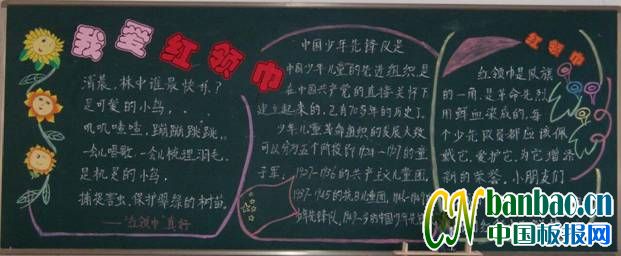 我爱红领巾
清晨,林中谁最快乐?
是可爱的小鸟,
叽叽喳喳,蹦蹦跳跳,
一会儿唱歌,一会儿梳理羽毛。
是机灵的小鸟,
捕捉害虫,保护翠绿的树苗,
——"红领巾"真好
中国少年先锋队是
中国少年儿童的先进组织,是
在中国共产党的直接关怀下
建立起来的,已有70多年的历史了。
少年儿童革命组织的发展大致
可以分为五个阶段
1927-1936的共产主义儿童团,
1937-1945的抗日儿童团,
红领巾
红领巾是队旗
的一角,是革命先烈
用鲜血染成的,每
个少先队员都应该佩
戴它,爱护它,为它增添
新的荣誉。小朋友们
banbao.cn
中国板报网